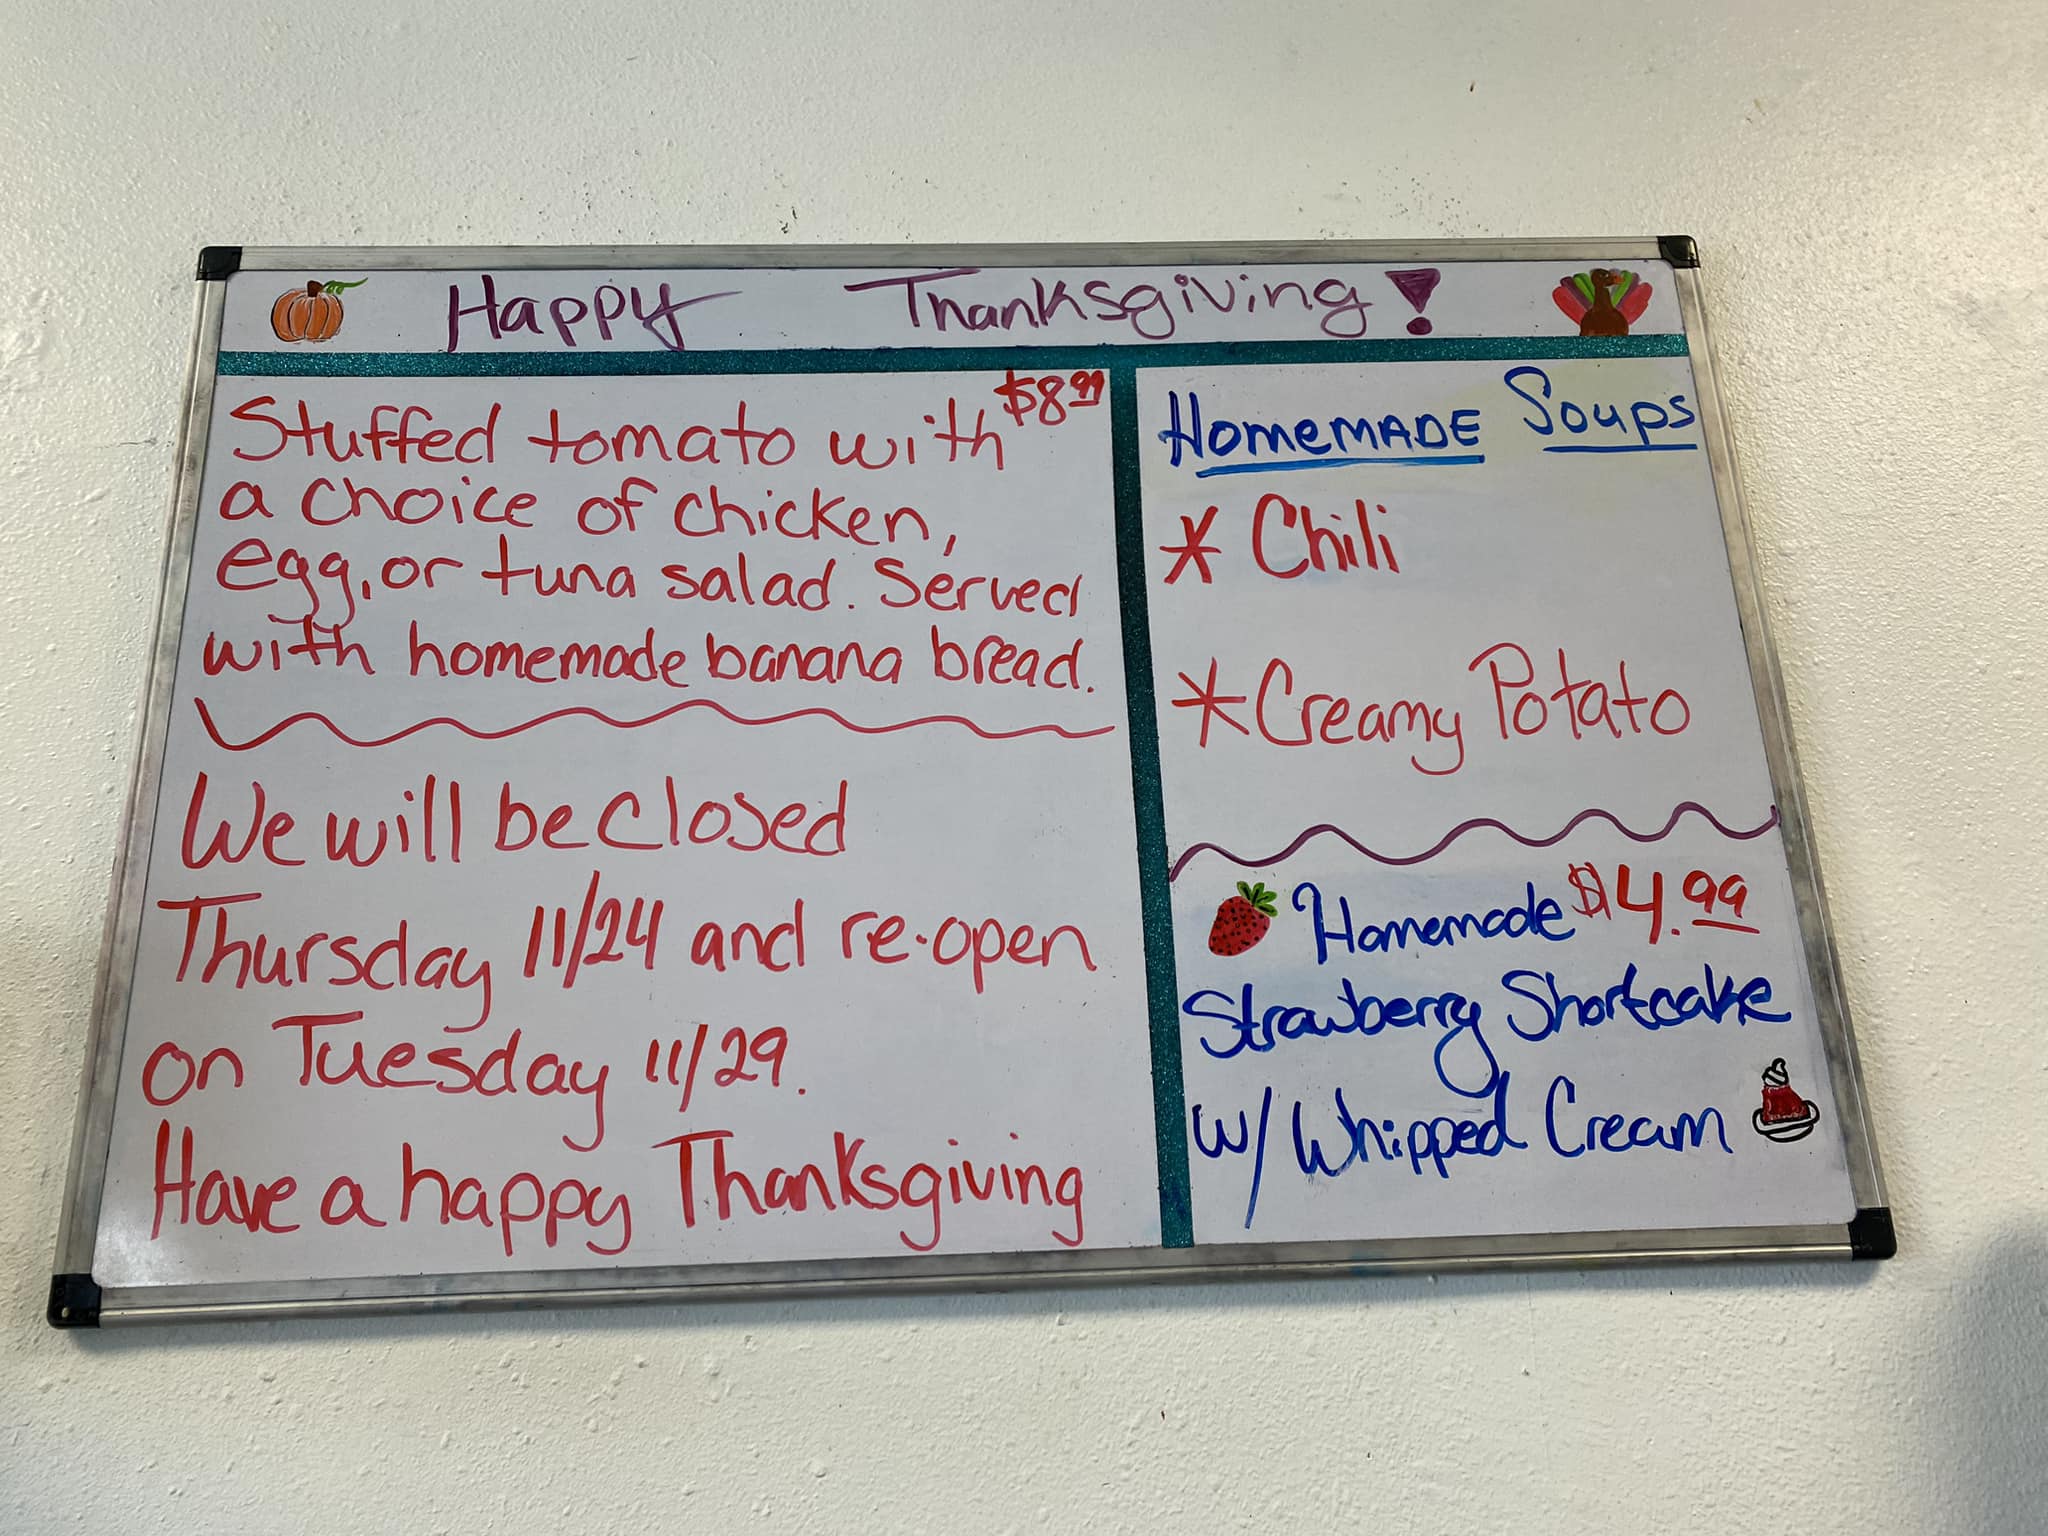 Happy Thanksgiving!
$8.99
Stuffed tomato with
a choice of chicken,
egg, or tuna salad. Served
with homemade banana bread.
We will be closed
Thursday 11/24 and re-open
on Tuesday 11/29.
Have a happy Thanksgiving
Homemade Soups
* Chili
* Creamy Potato
Homemade $4.99
Strawberry Shortcake
w/ Whipped Cream